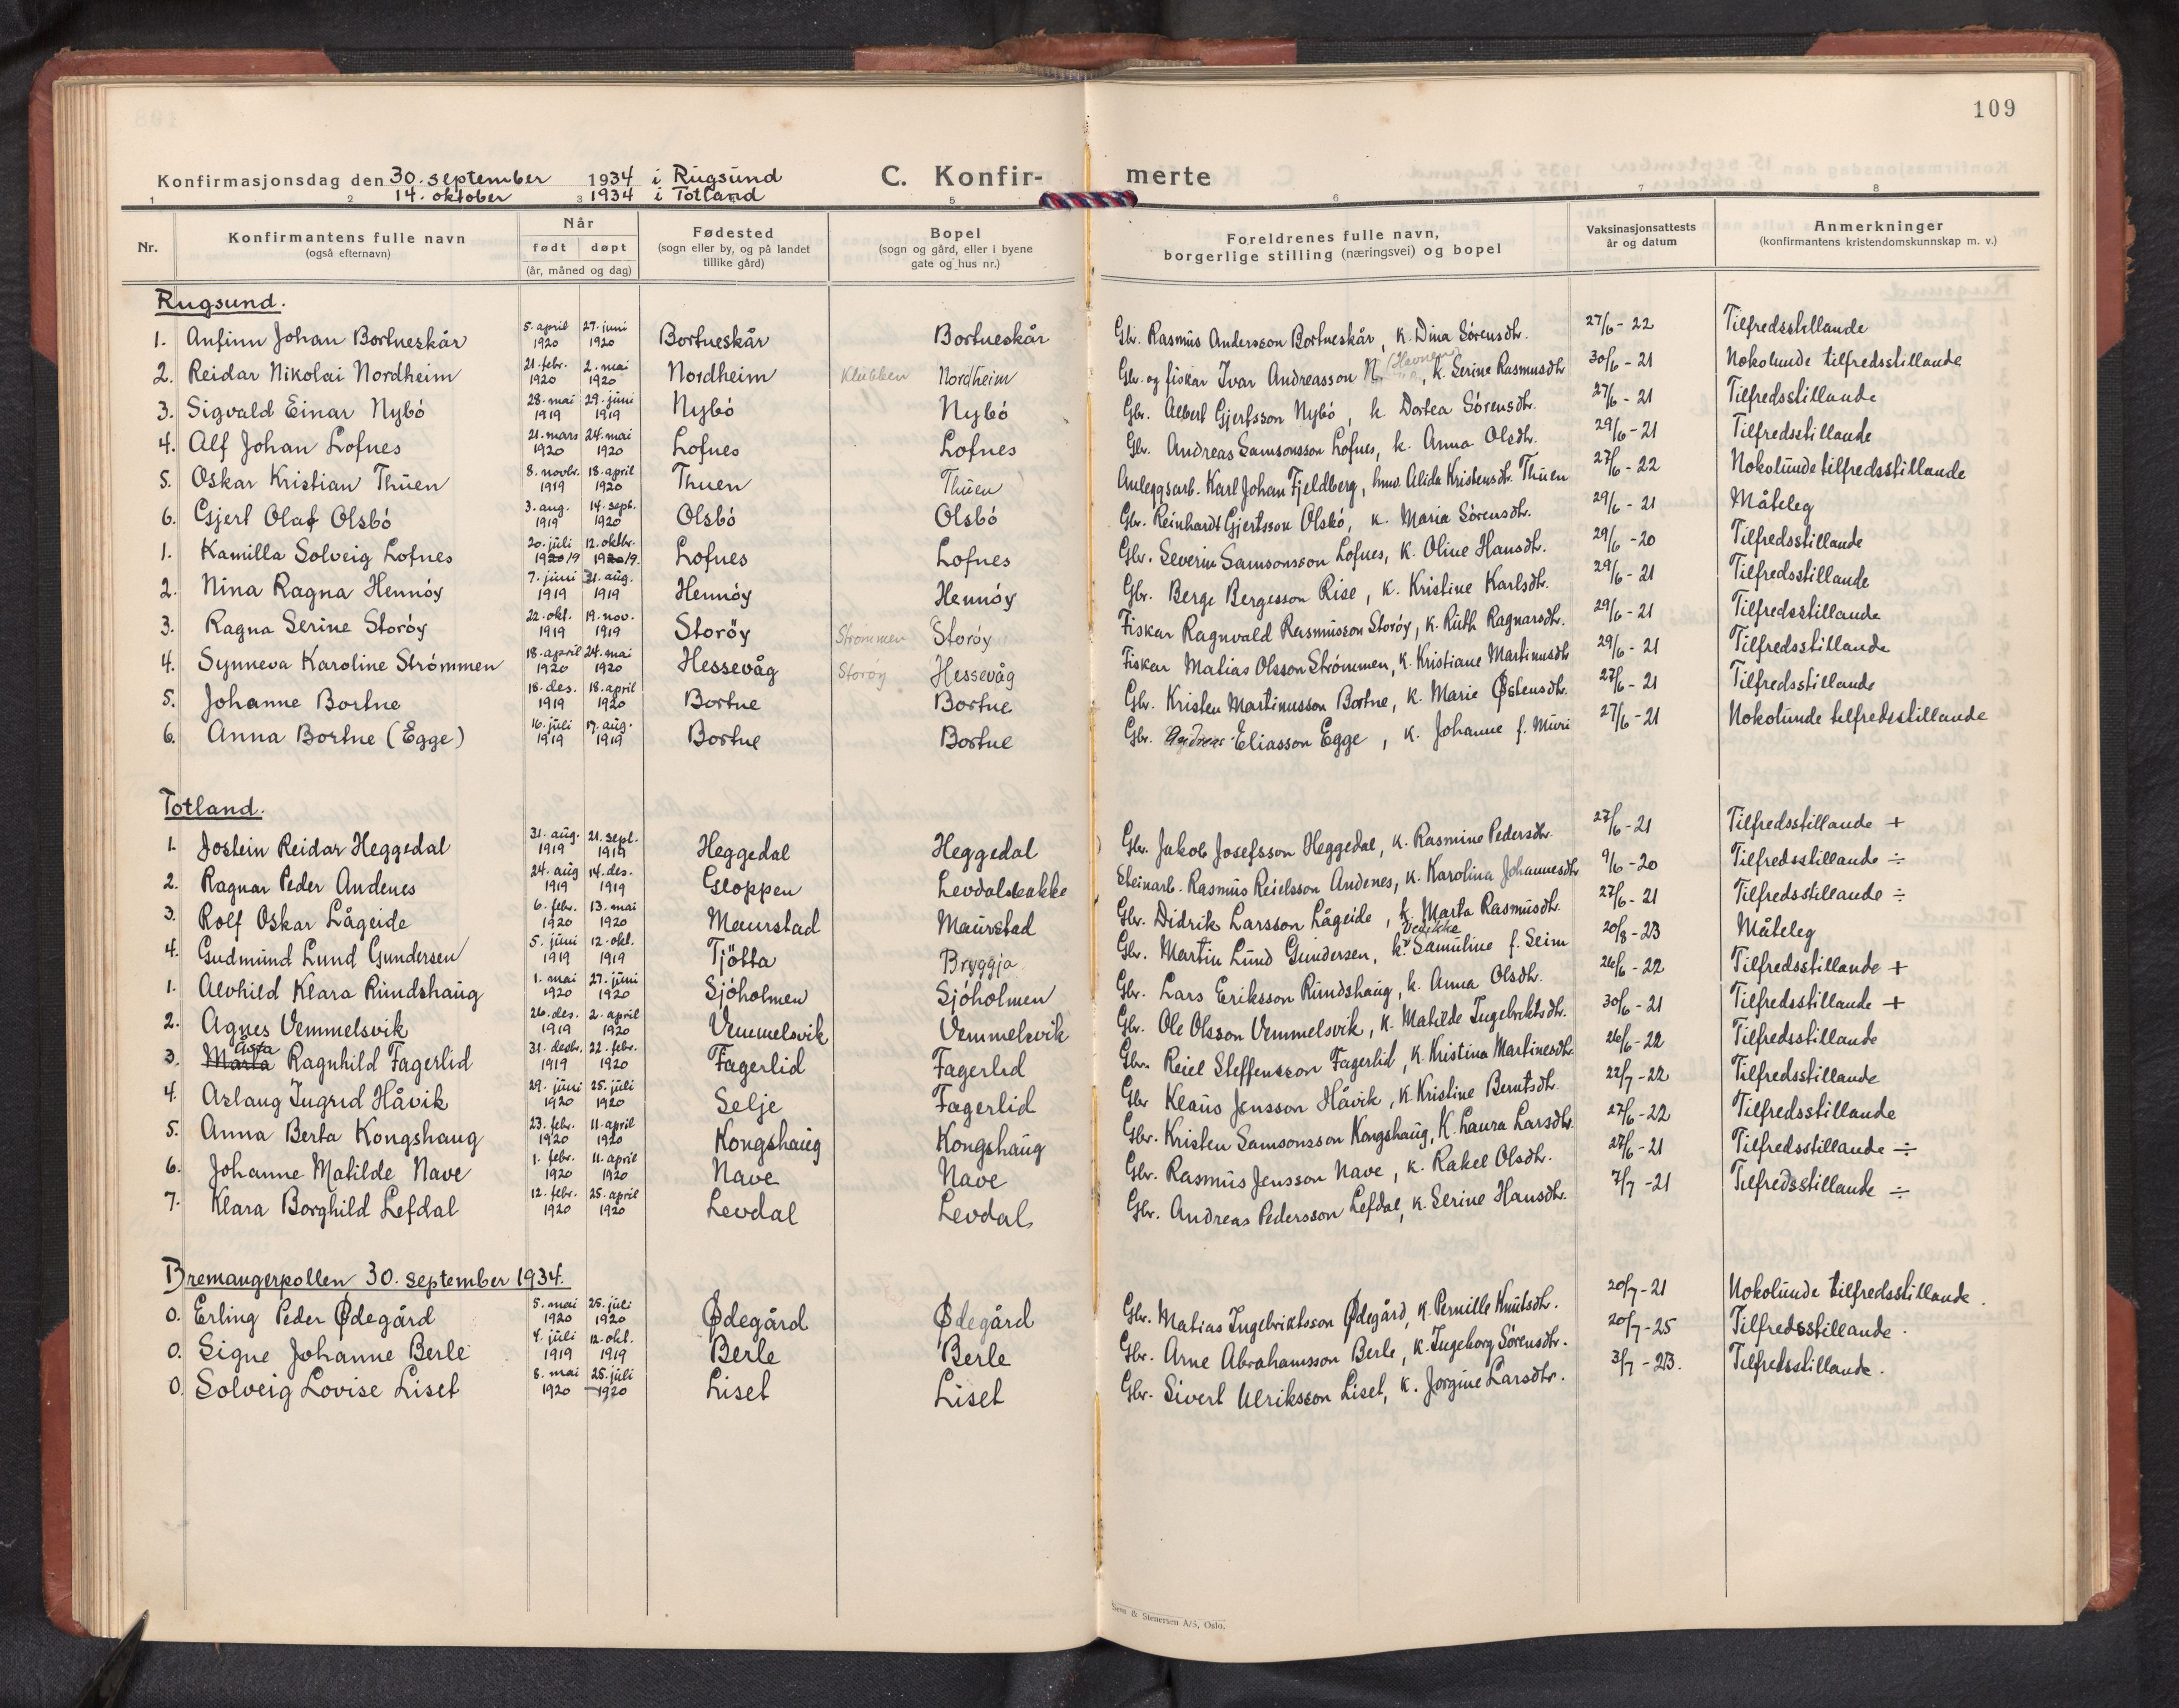 109
Konfirmasjonsdag den 30. september 1934 i Rugsund C. Konfir- merte
14. oktober 1934 i Totland
1 2 3 5 6 7 8
Nr. Konfirmantens fulle navn (også efternavn) Når født døpt (år, måned og dag) Fødested (sogn eller by, og på landet tillike gård) Bopel (sogn og gård, eller i byene gate og hus nr.) Foreldrenes fulle navn, borgerlige stilling (næringsvei) og bopel Vaksinasjonsattests år og datum Anmerkninger (konfirmantens kristendomskunnskap m. v.)
Rugsund.
1. Anfinn Johan Bortneskår 5. april 1920 27. juni 1920 Bortneskår Bortneskår Gbr. Rasmus Andersson Bortneskår, K. Dina Sörensdtr. 27/6 - 22 Tilfredsstillande
2. Reidar Nikolai Nordheim 21. febr. 1920 2. mai 1920 Nordheim Klubben Nordheim Gbr. og fiskar Ivar Andreasson N. (Havnen), K. Serine Rasmusdtr 30/6 - 21 Nokolunde tilfredsstillande
3. Sigvald Einar Nybö 28. mai 1919 29. juni 1919 Nybö Nybö Gbr. Albert Gjertsson Nybö, k. Dortea Sörensdtr. 27/6 - 21 Tilfredsstillande
4. Alf Johan Lofnes 21. mars 1920 24. mai 1920 Lofnes Lofnes Gbr. Andreas Samsonsson Lofnes, k. Anna Olsdtr. 29/6 - 21 Tilfredsstillande
5. Oskar Kristian Thuen 8. novbr. 1919 18. april 1920 Thuen Thuen Anleggsarb. Karl Johan Fjeldberg, hmo. Alida Kristensdtr. Thuen 27/6 - 22 Nokolunde tilfredsstillande
6. Gjert Olaf Olsbö 3. aug. 1919 14. sept. 1920 Olsbö Olsbö Gbr. Reinhardt Gjertsson Olsbö, K. Maria Sörensdtr. 29/6 - 21 Måteleg
1. Kamilla Solveig Lofnes 20. juli 1920/19 12. oktbr. 1920/19. Lofnes Lofnes Gbr. Severin Samsonsson Lofnes, K. Oline Hansdtr. 29/6 - 20 Tilfredsstillande
2. Nina Ragna Hennöy 7. juni 1919 31. aug. 1919 Hennöy Hennöy Gbr. Berge Bergesson Rise, K. Kristine Karlsdtr. 29/6 - 21 Tilfredsstillande
3. Ragna Serine Storöy 22. okt. 1919 19. nov. 1919 Storöy Strömmen Storöy Fiskar Ragnvald Rasmusson Storöy, K. Ruth Ragnarsdtr. 29/6 - 21 Tilfredsstillande
4. Synneva Karoline Strömmen 18. april 1920 24. mai 1920 Hessevåg Storöy Hessevåg Fiskar Matias Olsson Strömmen, K. Kristiane Martinusdtr 29/6 - 21 Tilfredsstillande
5. Johanne Bortne 18. des. 1919 18. april 1920 Bortne Bortne Gbr. Kristen Martinusson Bortne, K. Marie Østensdtr. 27/6 - 21 Tilfredsstillande
6. Anna Bortne (Egge) 16. juli 1919 17. aug. 1919 Bortne Bortne Gbr. Andreas Eliasson Egge, K. Johanne f. Muri 27/6 - 21 Nokolunde telfredsstillande
Totland.
1. Jostein Reidar Heggedal 31. aug. 1919 21. sept. 1919 Heggedal Heggedal Gbr. Jakob Josefsson Heggedal, K. Rasmine Pedersdtr. 27/6 - 21 Tilfredsstillande +
2. Ragnar Peder Andenes 24. aug 1919 14. des. 1919 Gloppen Levdalsbakke Steinarb. Rasmus Reielsson Andenes, K. Karolina Johannesdtr 9/6 - 20 Tilfredsstillande ÷
3. Rolf Oskar Lågeide 6. febr. 1920 13. mai 1920 Maurstad Maurstad Gbr. Didrik Larsson Lågeide, k. Marta Rasmusdtr. 27/6 - 21 Tilfredsstillande ÷
4. Gudmund Lund Gundersen 5. juni 1919 12. okt. 1919 Tjötta Bryggja Gbr. Martin Lund Gundersen, k. Samuline f. Seim 20/8 - 23 Måteleg
1. Alvhild Klara Rundshaug 1. mai 1920 27. juni 1920 Sjöholmen Sjöholmen Gbr. Lars Eriksson Rundshaug, k. Anna Olsdtr. 26/6 - 22 Tilfredsstillande +
2. Agnes Vemmelsvik 26. des. 1919 2. april 1920 Vemmelsvik Vemmelsvik Gbr. Ole Olsson Vemmelsvik, K. Matilde Ingebriktsdtr. 30/6 - 21 Tilfredsstillande +
3. Marta Åsta Ragnhild Fagerlid 31. desbr. 1919 22. febr. 1920 Fagerlid Fagerlid Gbr. Reiel Steffensson Fagerlid, K. Kristina Martinesdtr 26/6 - 22 Tilfredsstillande
4. Aslaug Ingrid Håvik 29. juni 1920 25. juli 1920 Selje Fagerlid Gbr Klaus Jensson Håvik, K. Kristine Berntsdtr. 22/7 - 22 Tilfredsstillande
5. Anna Berta Kongshaug 23. febr. 1920 11. april 1920 Kongshaug Kongshaug Gbr. Kristen Samsonsson Kongshaug, K. Laura Larsdtr. 27/6 - 22 Tilfredsstillande
6. Johanne Matilde Nave 1. febr. 1920 11. april 1920 Nave Nave Gbr. Rasmus Jensson Nave, K. Rakel Olsdtr. 27/6 - 21 Tilfredsstillande ÷
7. Klara Borghild Lefdal 12. febr. 1920 25. april 1920 Levdal Levdal Gbr. Andreas Pedersson Lefdal, K. Serine Hansdtr. 7/7 - 21 Tilfredsstillande ÷
Bremangerpollen 30. september 1934.
0. Erling Peder Ødegård 5. mai 1920 25. juli 1920 Ødegård Ødegård Gbr. Matias Ingebriktsson Ødegård, K. Pernille Knutsdtr. 20/7 - 21 Nokolunde tilfredsstillande.
0. Signe Johanne Berle 4. juli 1919 12. okt. 1919 Berle Berle Gbr. Arne Abrahamsson Berle, K. Ingeborg Sörensdtr. 20/7 - 25 Tilfredsstillande.
0. Solveig Lovise Liset 8. mai 1920 25. juli 1920 Liset Liset Gbr. Sivert Ulriksson Liset, K. Jorgine Larsdtr. 3/7 - 23. Tilfredsstillande.
& Stenersen A/S, Oslo.